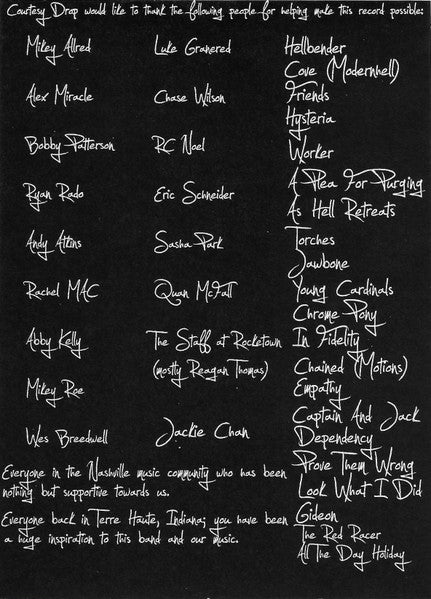 Courtesy Drop would like to thank the following people for helping make this record possible:
Mikey Allred
Alex Miracle
Bobby Patterson
Ryan Rado
Andy Atkins
Rachel MAC
Abby Kelly
Mikey Roe
Wes Breedwell
Luke Granered
Chase Wilson
RC Noel
Eric Schneider
Sasha Park
Quan McFall
The Staff at Rocketown
(mostly Reagan Thomas)
Jackie Chan
Hellbender
Cove (Modernhell)
Friends
Hysteria
Worker
A Plea For Purging
As Hell Retreats
Torches
Jawbone
Young Cardinals
Chrome Pony
In Fidelity
Chained (Motions)
Empathy
Captain And Jack
Dependency
Prove Them Wrong
Look What I Did
Gideon
The Red Racer
All The Day Holiday
Everyone in the Nashville music community who has been
nothing but supportive towards us.
Everyone back in Terre Haute, Indiana; you have been
a huge inspiration to this band and our music.